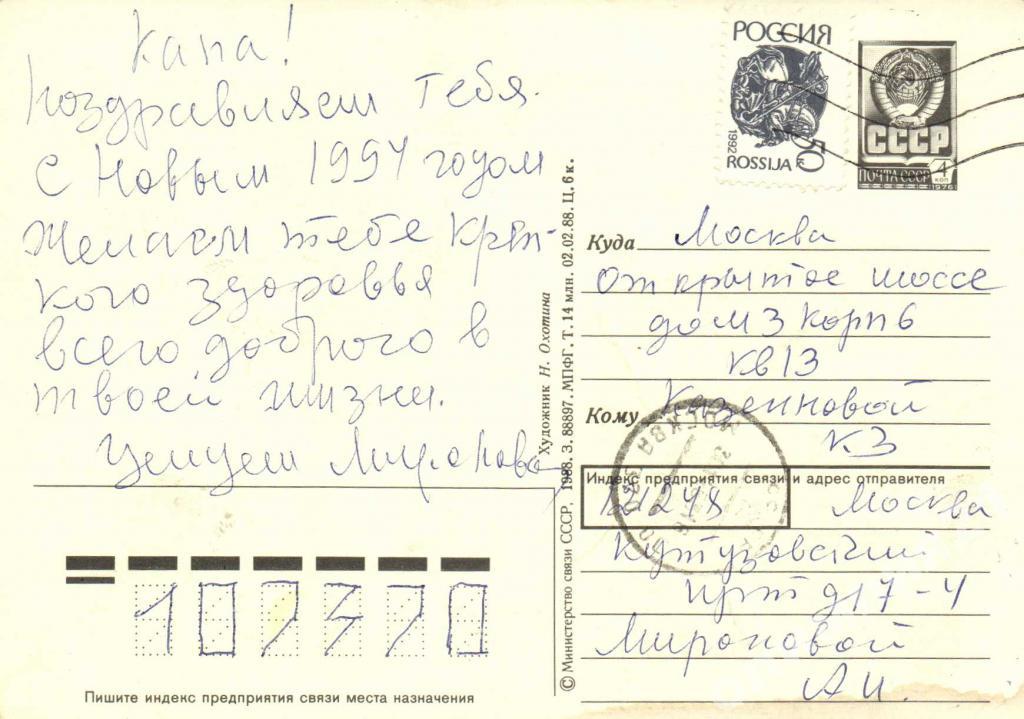 Капа!
Поздравляем тебя
с Новым 1994 годом
желаем тебе креп-
кого здоровья
всего доброго в
твоей жизни.
Целуем Миронова
РОССИЯ
1992
ROSSIJA
50
к
СССР
ПОЧТА СССР
4
КОП
1976
Куда Москва
Открытое шоссе
дом 3 корп 6
кв 13
Кому Казенновой
КЗ
МОСКВА
Индекс предприятия связи и адрес отправителя
121248 Москва
Кутузовский
прт д 17-4
Мироновой
А И.
© Министерство связи СССР, 1988. З. 88897. МПФГ. Т. 14 млн. 02.02.88. Ц. 6 к.
Художник Н. Охотина
107370
Пишите индекс предприятия связи места назначения